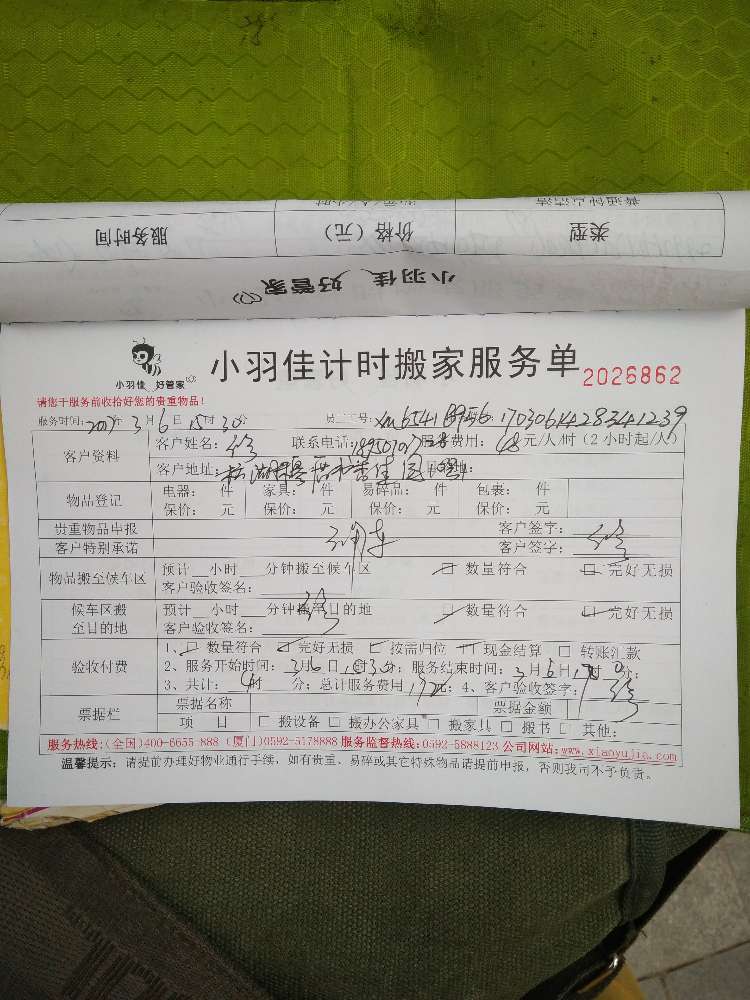 普通钟点清洁
类型 价格（元） 服务时间
小羽佳 好管家
小羽佳 好管家
小羽佳计时搬家服务单 2026862
请您于服务前收拾好您的贵重物品！
服务时间：2017年3月6日15时30分 员工工号：
客户资料
客户姓名： 联系电话： 服务费用：48元/人/时（2小时起/人）
客户地址：
物品登记
电器： 件 家具： 件 易碎品： 件 包裹： 件
保价： 元 保价： 元 保价： 元 保价： 元
贵重物品申报 客户签字：
客户特别承诺 客户签字：
物品搬至候车区
预计 小时 分钟搬至候车区 数量符合 完好无损
客户验收签名：
候车区搬至目的地
预计 小时 分钟搬至目的地 数量符合 完好无损
客户验收签名：
验收付费
1、 数量符合 完好无损 按需归位 现金结算 转账汇款
2、服务开始时间：3月6日 时30分；服务结束时间：3月6日17时 分；
3、共计：4时 分；总计服务费用 元；4、客户验收签字：
票据栏
票据名称 票据金额
项 目 搬设备 搬办公家具 搬家具 搬书 其他：
服务热线：(全国)400-6655-888 (厦门)0592-5178888 服务监督热线：0592-5888123 公司网站：www.xiaoyujia.com
温馨提示：请提前办理好物业通行手续，如有贵重、易碎或其它特殊物品请提前申报，否则我司不予负责。